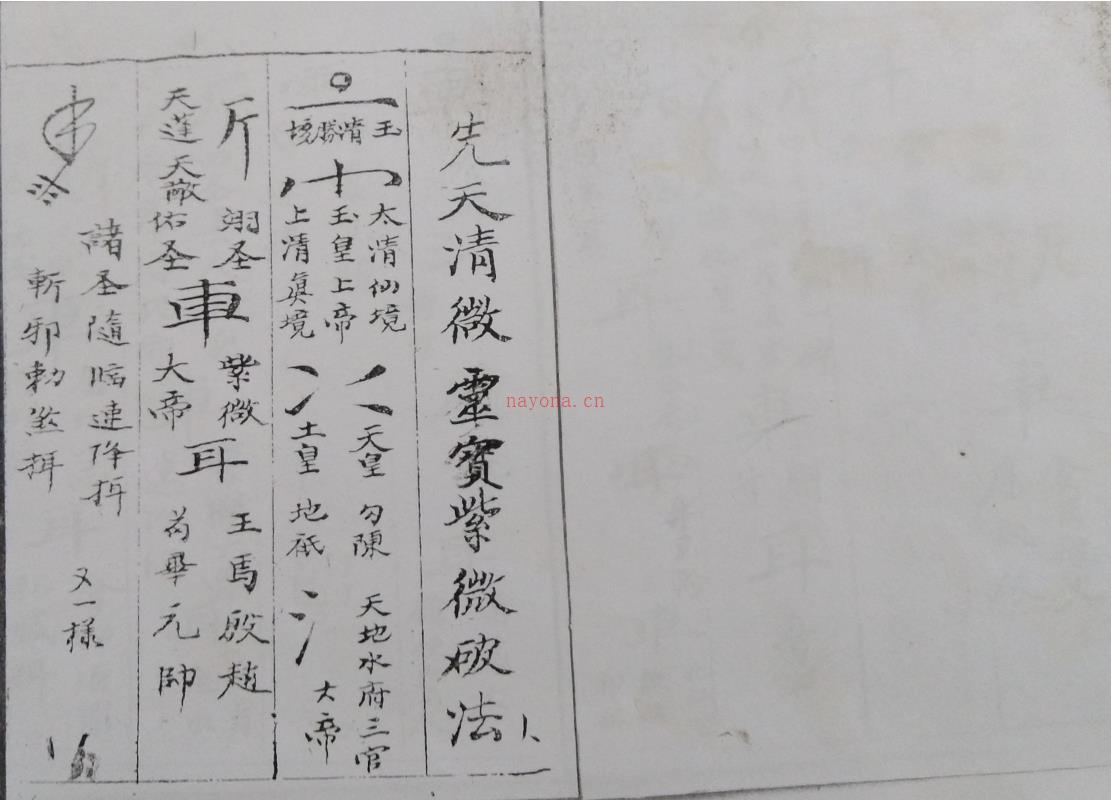 先天清微靈寶紫微破法
玉清勝境
太清仙境
玉皇上帝
上清眞境
天皇 勾陳 天地水府三官
土皇 地祇 大帝
斤 翊圣
天蓬天猷佑圣
車
紫微
大帝
耳
王馬殷趙
苟畢元帥
諸圣隨臨速降揖 又一樣
斬邪勅煞揖
nayona.cn